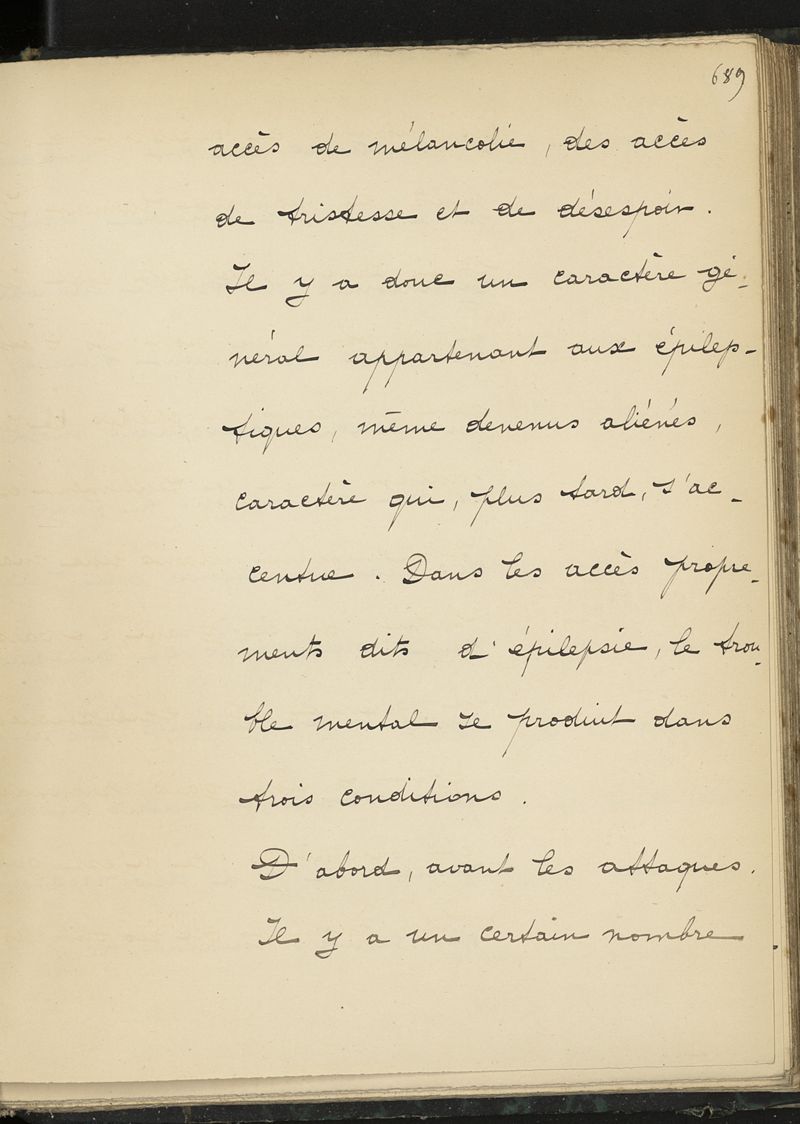 689
accès de mélancolie, des accès
de tristesse et de désespoir.
Il y a donc un caractère gé-
néral appartenant aux épilep-
tiques, même devenus aliénés,
caractère qui, plus tard, s'ac-
centue. Dans les accès propre-
ments dits d'épilepsie, le trou-
ble mental se produit dans
trois conditions.
D'abord, avant les attaques.
Il y a un certain nombre